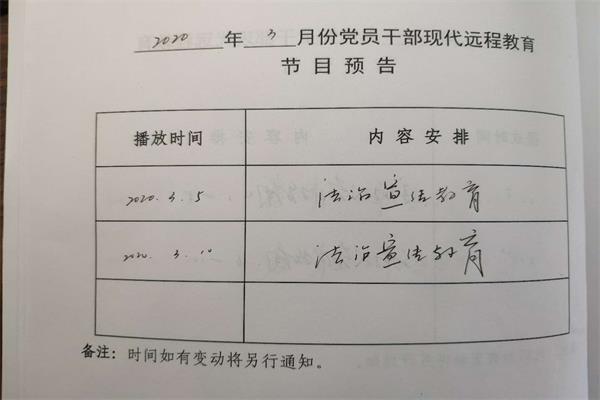 2020 年 3 月份党员干部现代远程教育
节目预告
播放时间 内容安排
2020.3.5 法治宣传教育
2020.3.10 法治宣传教育
备注：时间如有变动将另行通知。